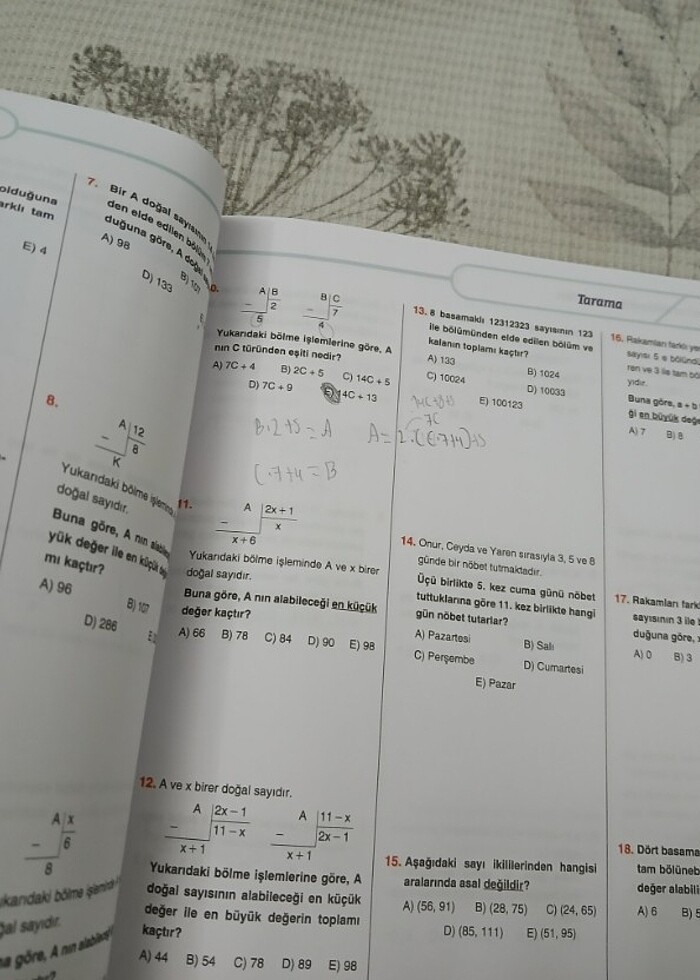 olduğuna
arklı tam
E) 4
7. Bir A doğal sayısının
den elde edilen bölüm
duğuna göre, A doğal
A) 98
B) 107
D) 133
8.
A 12
– 8
K
Yukarıdaki bölme
doğal sayıdır.
Buna göre, A nın
yük değer ile en küçük
mı kaçtır?
A) 96
B) 107
D) 286
A x
– 6
8
bölme
sayıdır.
göre, A nın
A B
– 2
5
B C
– 7
4
Yukarıdaki bölme işlemlerine göre, A
nın C türünden eşiti nedir?
A) 7C + 4 B) 2C + 5 C) 14C + 5
D) 7C + 9 E) 14C + 13
B.2+5=A
C.7+4=B
A=2.(C.7+4)+5
7C
11.
A 2x + 1
– x
x + 6
Yukarıdaki bölme işleminde A ve x birer
doğal sayıdır.
Buna göre, A nın alabileceği en küçük
değer kaçtır?
A) 66 B) 78 C) 84 D) 90 E) 98
12. A ve x birer doğal sayıdır.
A 2x – 1
– 11 – x
x + 1
A 11 – x
– 2x – 1
x + 1
Yukarıdaki bölme işlemlerine göre, A
doğal sayısının alabileceği en küçük
değer ile en büyük değerin toplamı
kaçtır?
A) 44 B) 54 C) 78 D) 89 E) 98
Tarama
13. 8 basamaklı 12312323 sayısının 123
ile bölümünden elde edilen bölüm ve
kalanın toplamı kaçtır?
A) 133
B) 1024
C) 10024
D) 10033
E) 100123
14. Onur, Ceyda ve Yaren sırasıyla 3, 5 ve 8
günde bir nöbet tutmaktadır.
Üçü birlikte 5. kez cuma günü nöbet
tuttuklarına göre 11. kez birlikte hangi
gün nöbet tutarlar?
A) Pazartesi
B) Salı
C) Perşembe
D) Cumartesi
E) Pazar
15. Aşağıdaki sayı ikililerinden hangisi
aralarında asal değildir?
A) (56, 91) B) (28, 75) C) (24, 65)
D) (85, 111) E) (51, 95)
16. Rakamları farklı
sayısı 5 e
ren ve 3 ile tam
yıdır.
Buna göre, a + b
ği en büyük
A) 7 B) 8
17. Rakamları
sayısının 3 ile
duğuna göre,
A) 0 B) 3
18. Dört
tam
değer
A) 6 B)